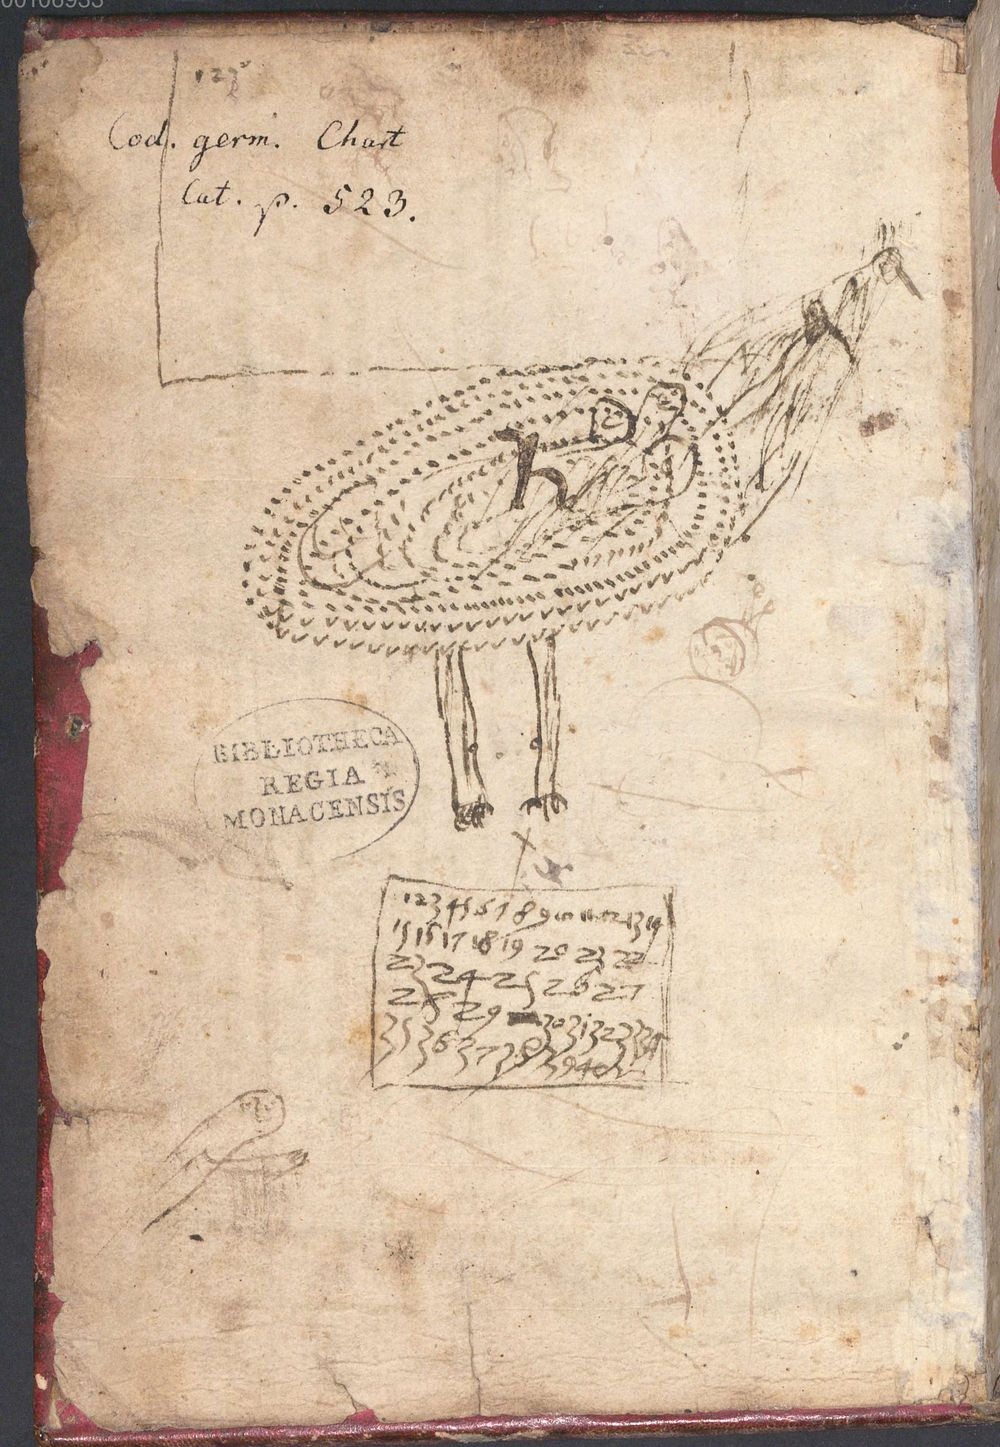 00108933
1 2 3
Cod. germ. Chart
Cat. p. 523.
h
BIBLIOTHECA
REGIA
MONACENSIS
1 2 3 4 5 6 7 8 9 10 11 12 13 14
15 16 17 18 19 20 23 22
23 24 25 26 27
28 29 30 31 32 33 34
35 36 37 38 39 40